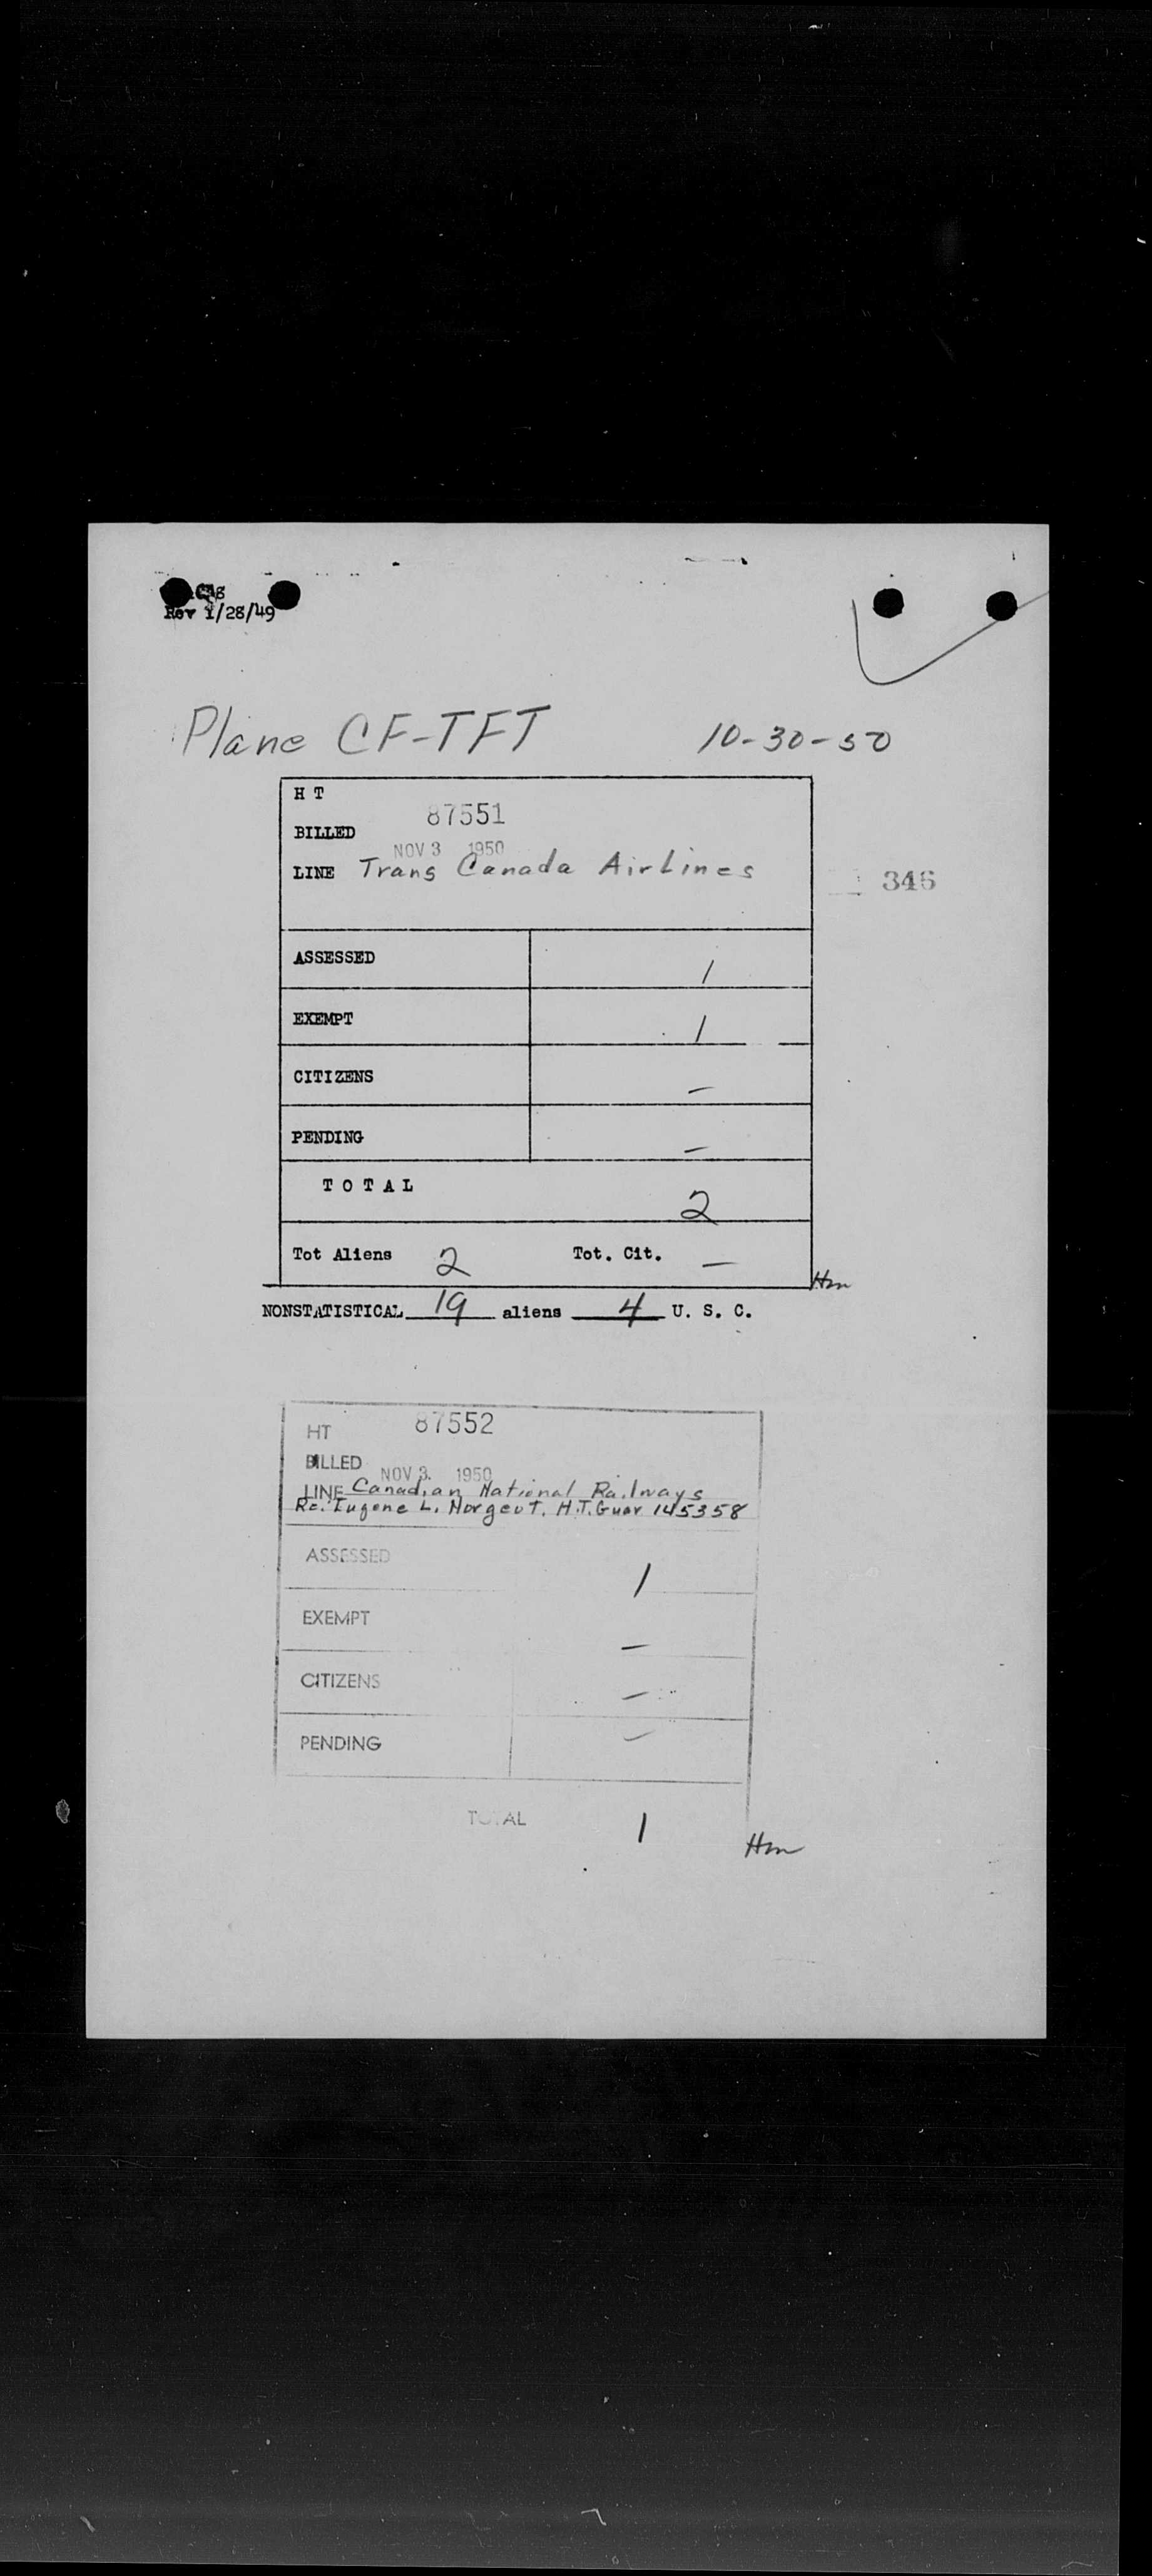 Rev 1/28/49
Plane CF-TFT 10-30-50
H T
87551
BILLED
NOV 3 1950
LINE Trans Canada AirLines
346
ASSESSED 1
EXEMPT 1
CITIZENS –
PENDING –
TOTAL 2
Tot Aliens 2 Tot. Cit. –
Hm
NONSTATISTICAL 19 aliens 4 U. S. C.
HT 87552
BILLED
NOV 3. 1950
LINE Canadian National Railways
Re: Eugene L. H.T. Guar 145358
ASSESSED 1
EXEMPT –
CITIZENS –
PENDING –
TOTAL 1
Hm